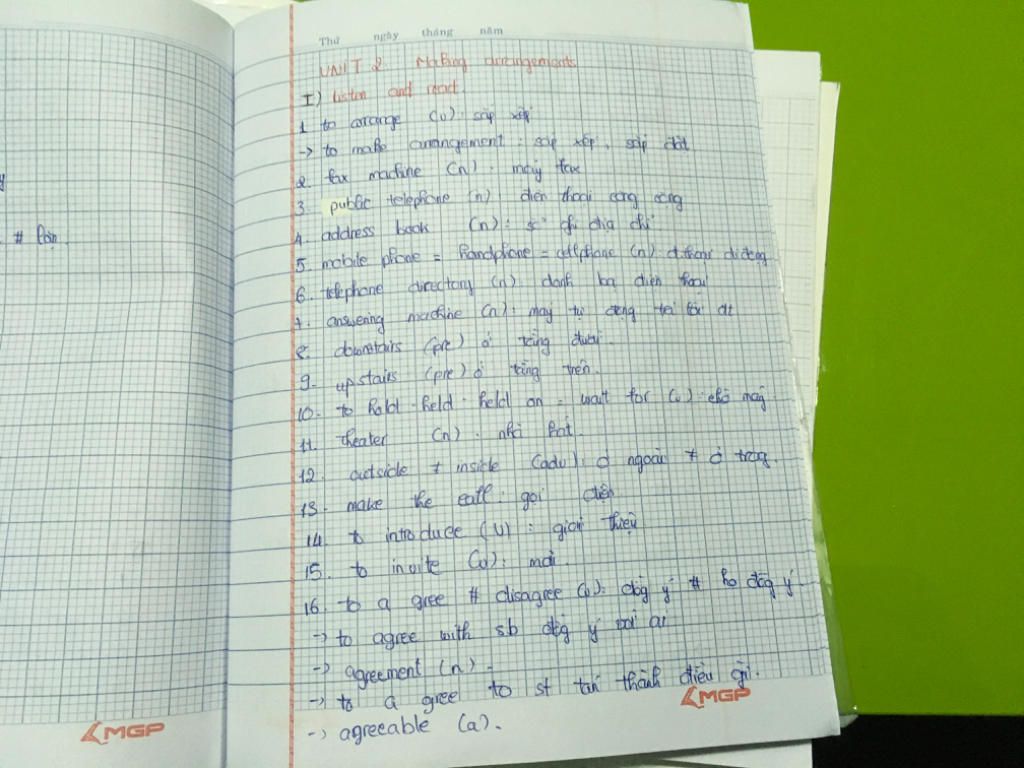 Thứ ngày tháng năm
UNIT 2 Making arrangements
I) Listen and read.
1. to arrange (v): sắp xếp
-> to make arrangement: sắp xếp, sắp đặt
2. fax machine (n): máy fax
3. public telephone (n) điện thoại công cộng
4. address book (n): sổ ghi địa chỉ
5. mobile phone = handphone = cellphone (n) đ.thoại di động
6. telephone directory (n): danh bạ điện thoại
7. answering machine (n): máy tự động trả lời đt
8. downstairs (pre) ở tầng dưới.
9. upstairs (pre) ở tầng trên.
10. to hold - held - held on = wait for (v): chờ máy
11. theater (n): nhà hát.
12. outside ≠ inside (adv): ở ngoài ≠ ở trong.
13. make the call: gọi điện
14. to introduce (v): giới thiệu
15. to invite (v): mời.
16. to a gree # disagree (v): đồng ý # ko đồng ý
-> to agree with sb đồng ý với ai
-> agreement (n) -
-> to a gree to st tán thành điều gì.
-> agreeable (a).
# lần.
MGP
MGP